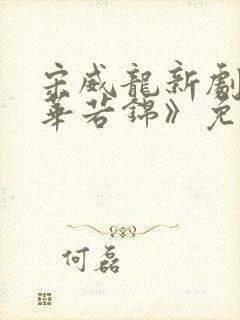 宋威龍新劇
華若錦》免
何磊